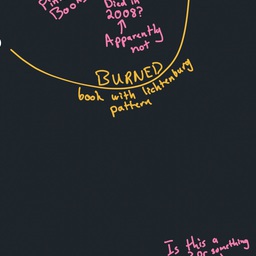 Books
Died in
2008?
Apparently
not
BURNED
book with lichtenburg
pattern
Is this a
something